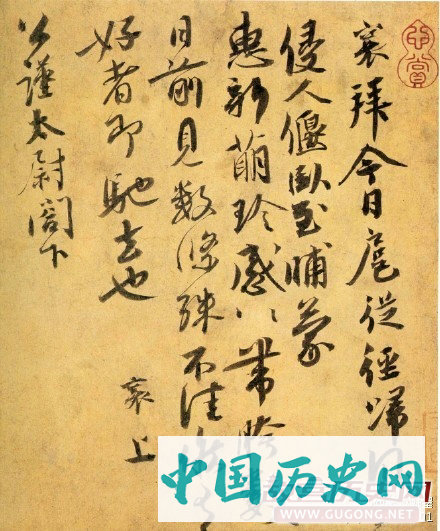 襄拜今日扈從徑歸
侵人偃臥至晡蒙
惠新萌珍感〻帶胯
日前見數條殊不佳
好者即馳去也
襄上
公謹太尉閣下
中国历史网
WWW.GUGONG.NET